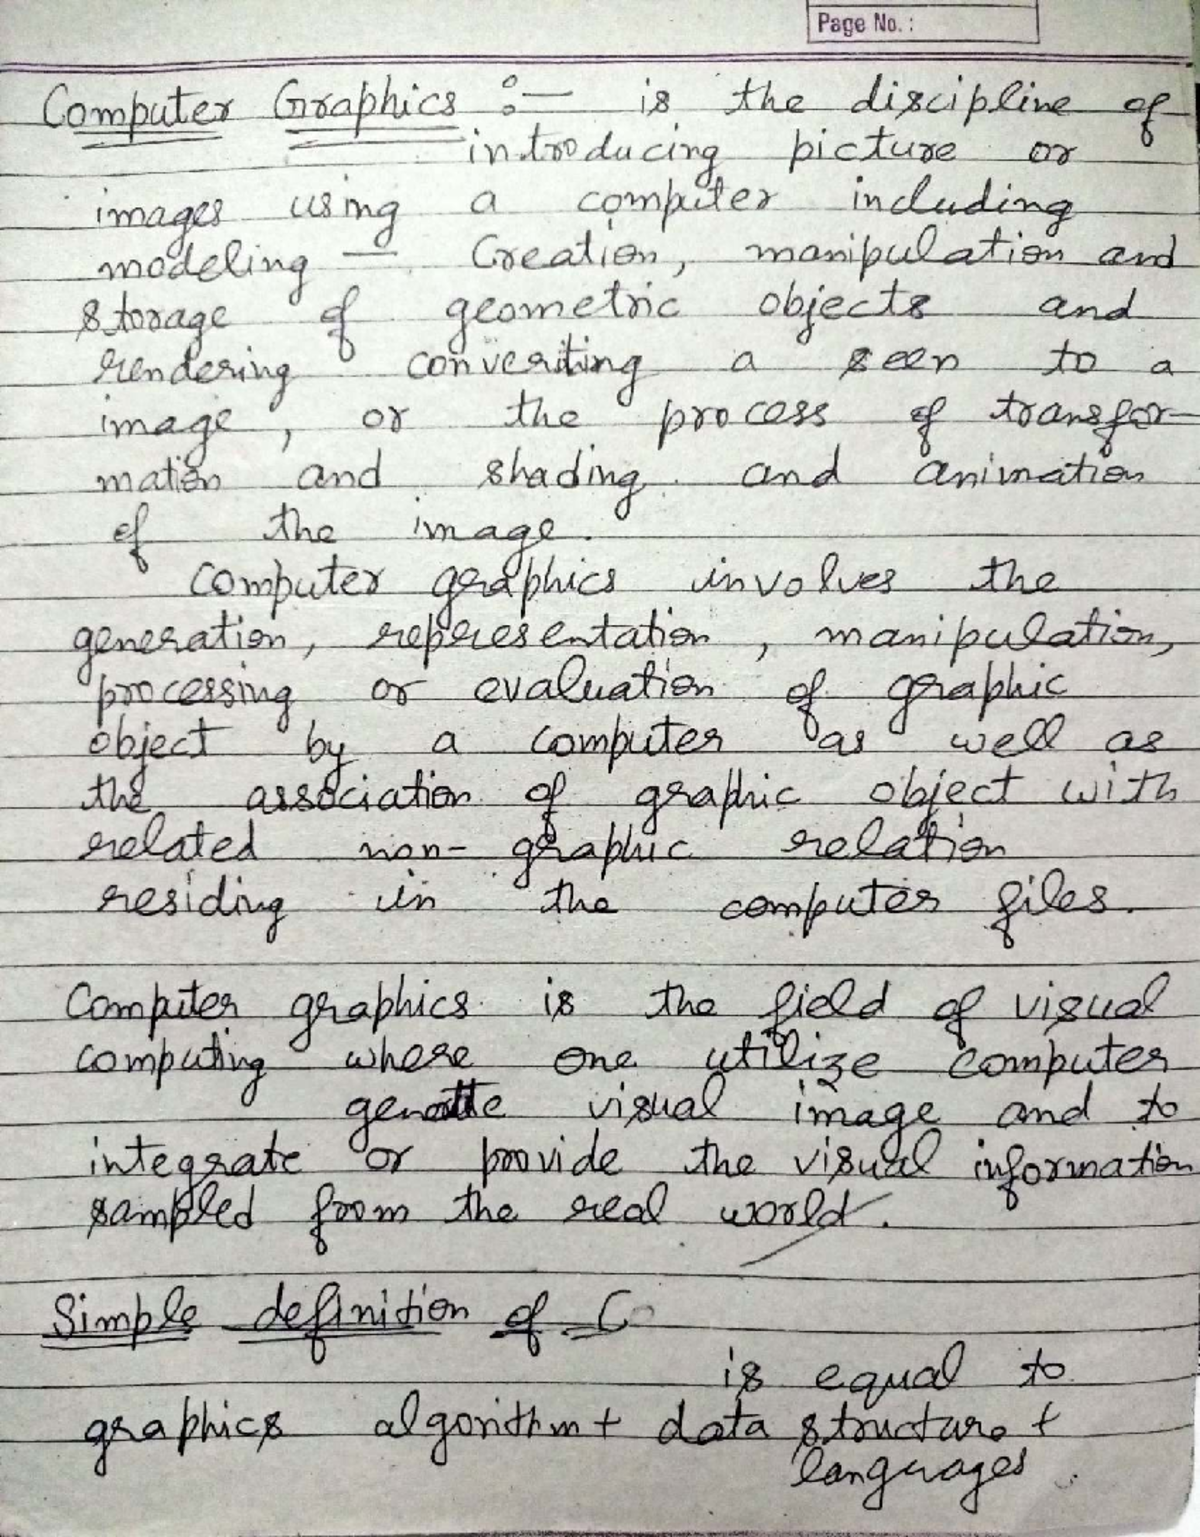 Page No. :
Computer Graphics :— is the discipline of
introducing picture or
images using a computer including
modeling — Creation, manipulation and
storage of geometric objects and
rendering converiting a seen to a
image, or the process of transfor-
mation and shading and animation
of the image.
Computer graphics involves the
generation, representation, manipulation,
processing or evaluation of graphic
object by a computer as well as
the association of graphic object with
related non-graphic relation
residing in the computer files.
Computer graphics is the field of visual
computing where one utilize computer
visual image and to
integrate or provide the visual information
sampled from the real world.
Simple definition of
is equal to
graphics algorithm + data structure +
languages